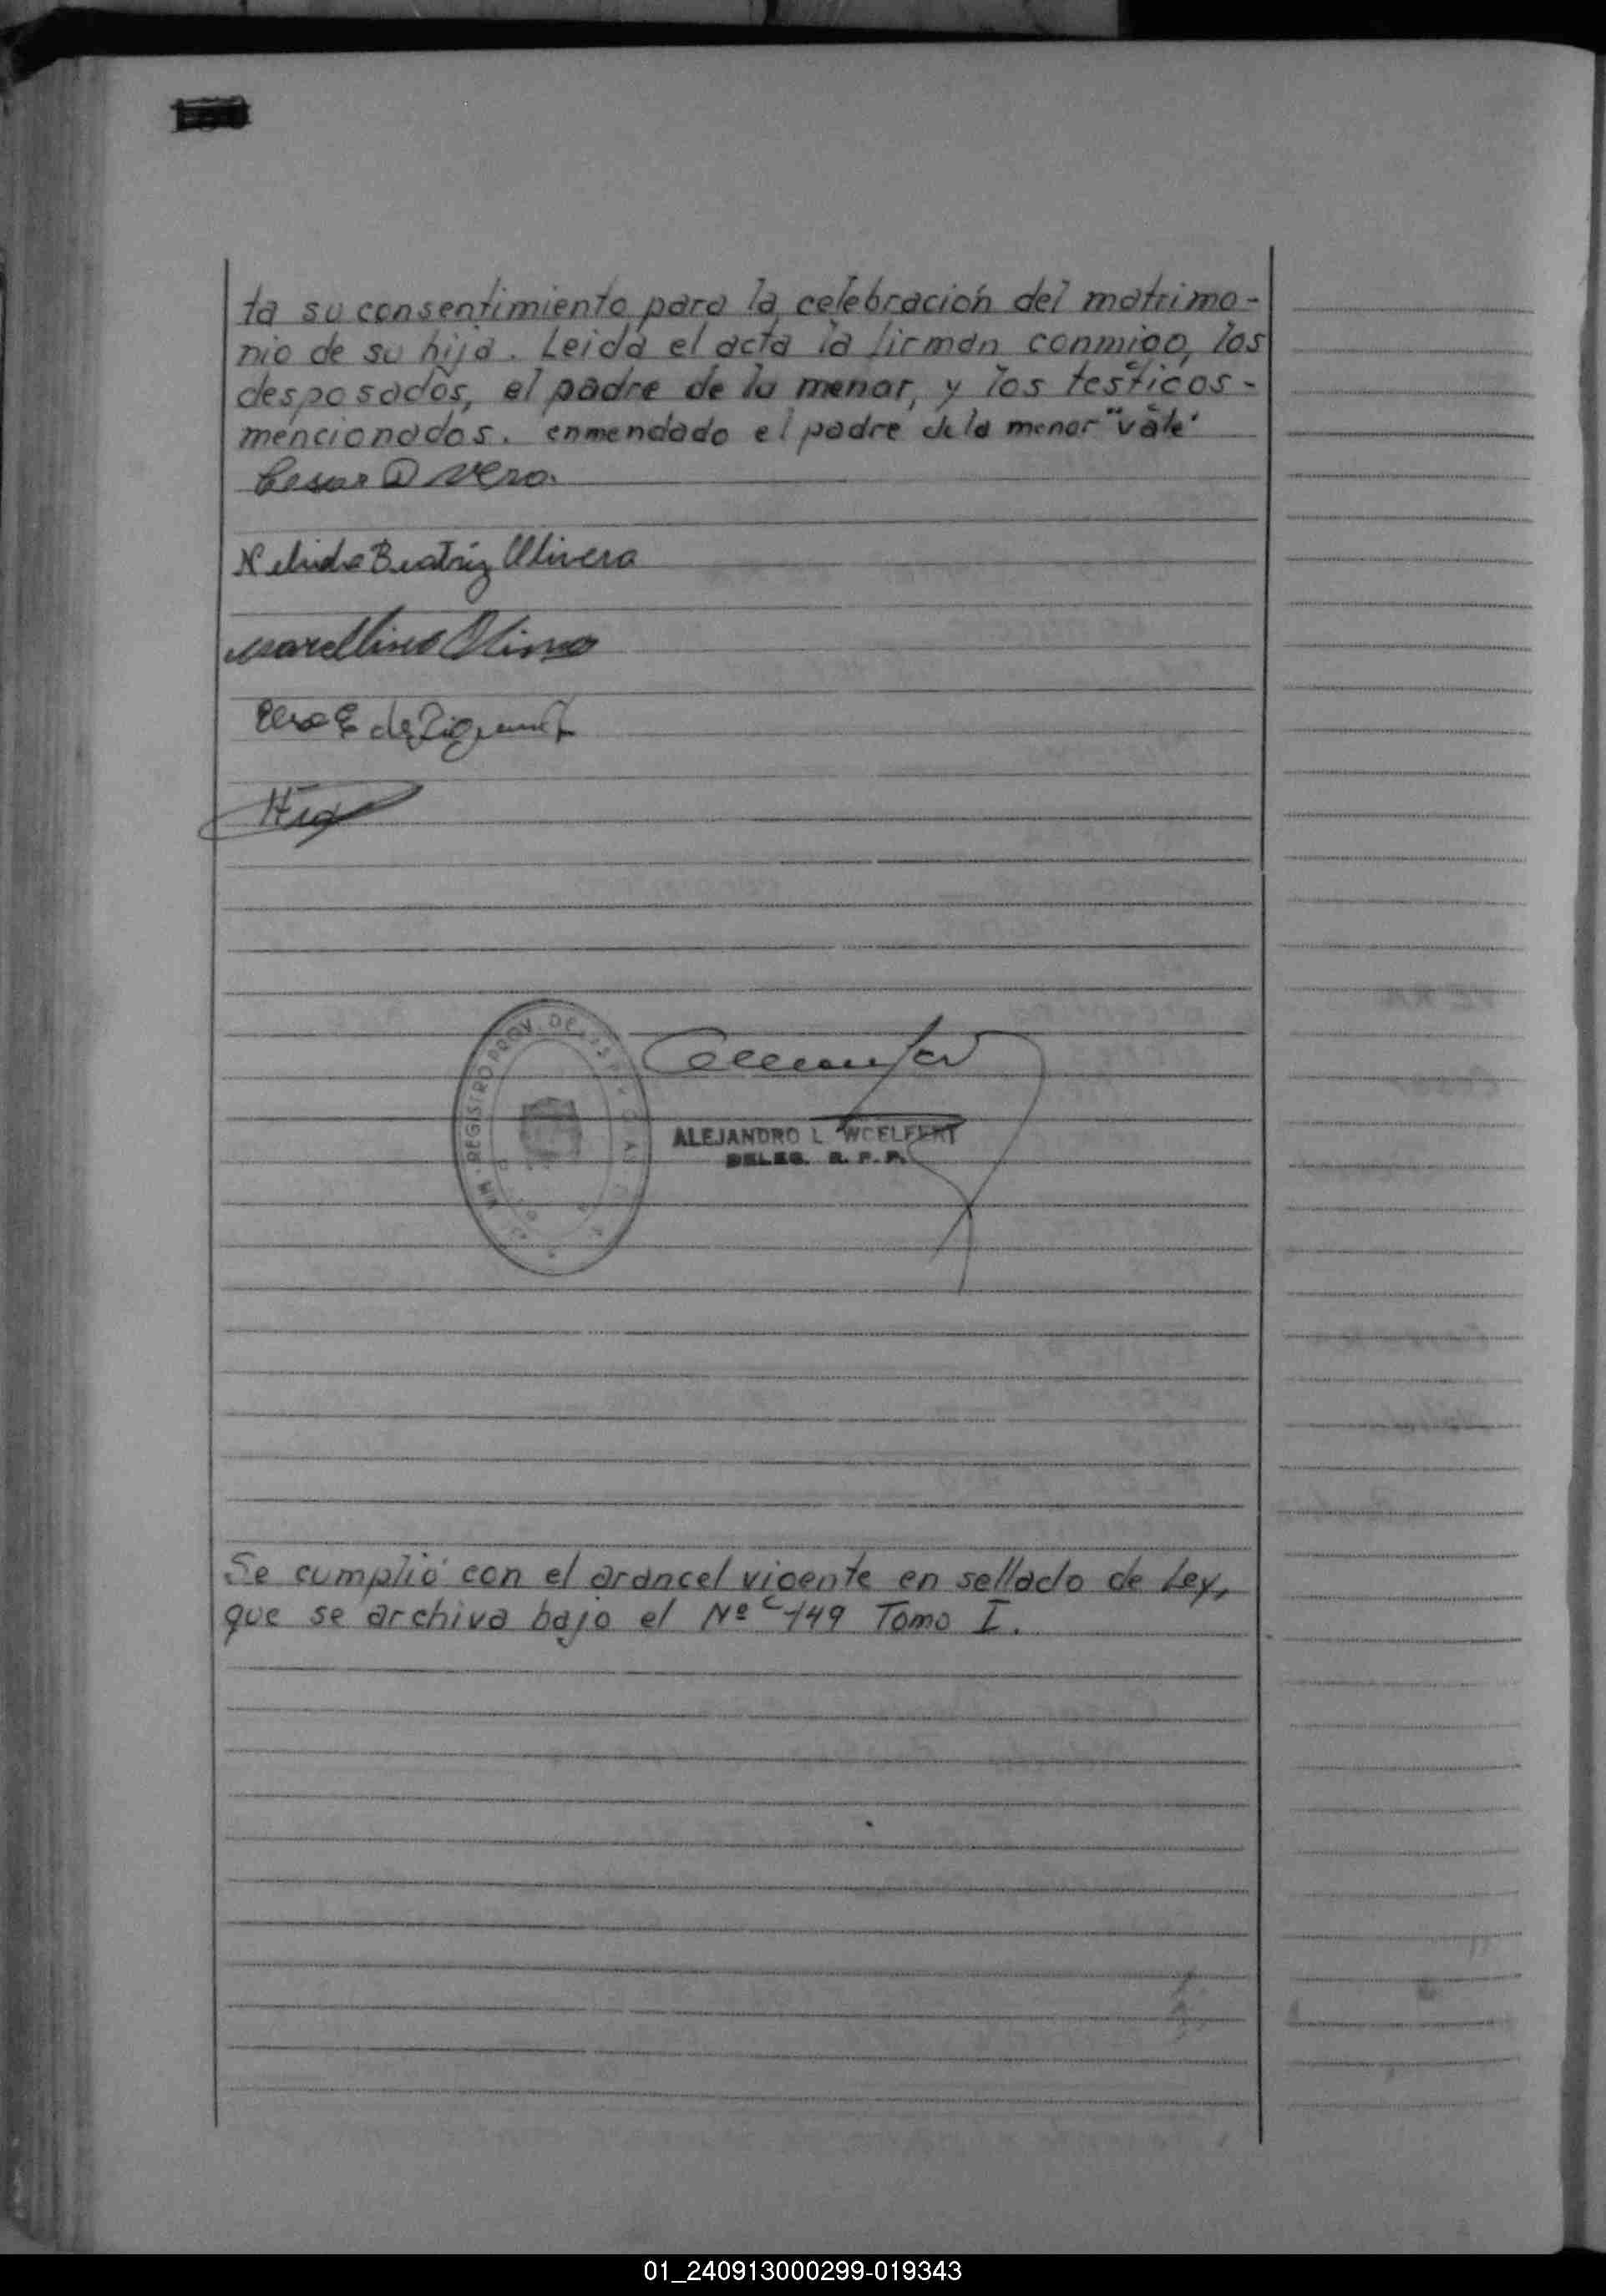 ta su consentimiento para la celebración del matrimo-
nio de su hija. Leida el acta la firman conmigo, los
desposados, el padre de la menor, y los testigos-
mencionados. enmendado el padre de la menor "vale"
Cesar D Vera.
Nelida Beatriz Olivera
Marcellino Olivera
de
REGISTRO PROV. DE LAS PERSONAS
ALEJANDRO L. WOELFERT
DELEG. R. P. P.
Se cumplió con el arancel vigente en sellado de Ley,
que se archiva bajo el Nº 149 Tomo I.
01_240913000299-019343